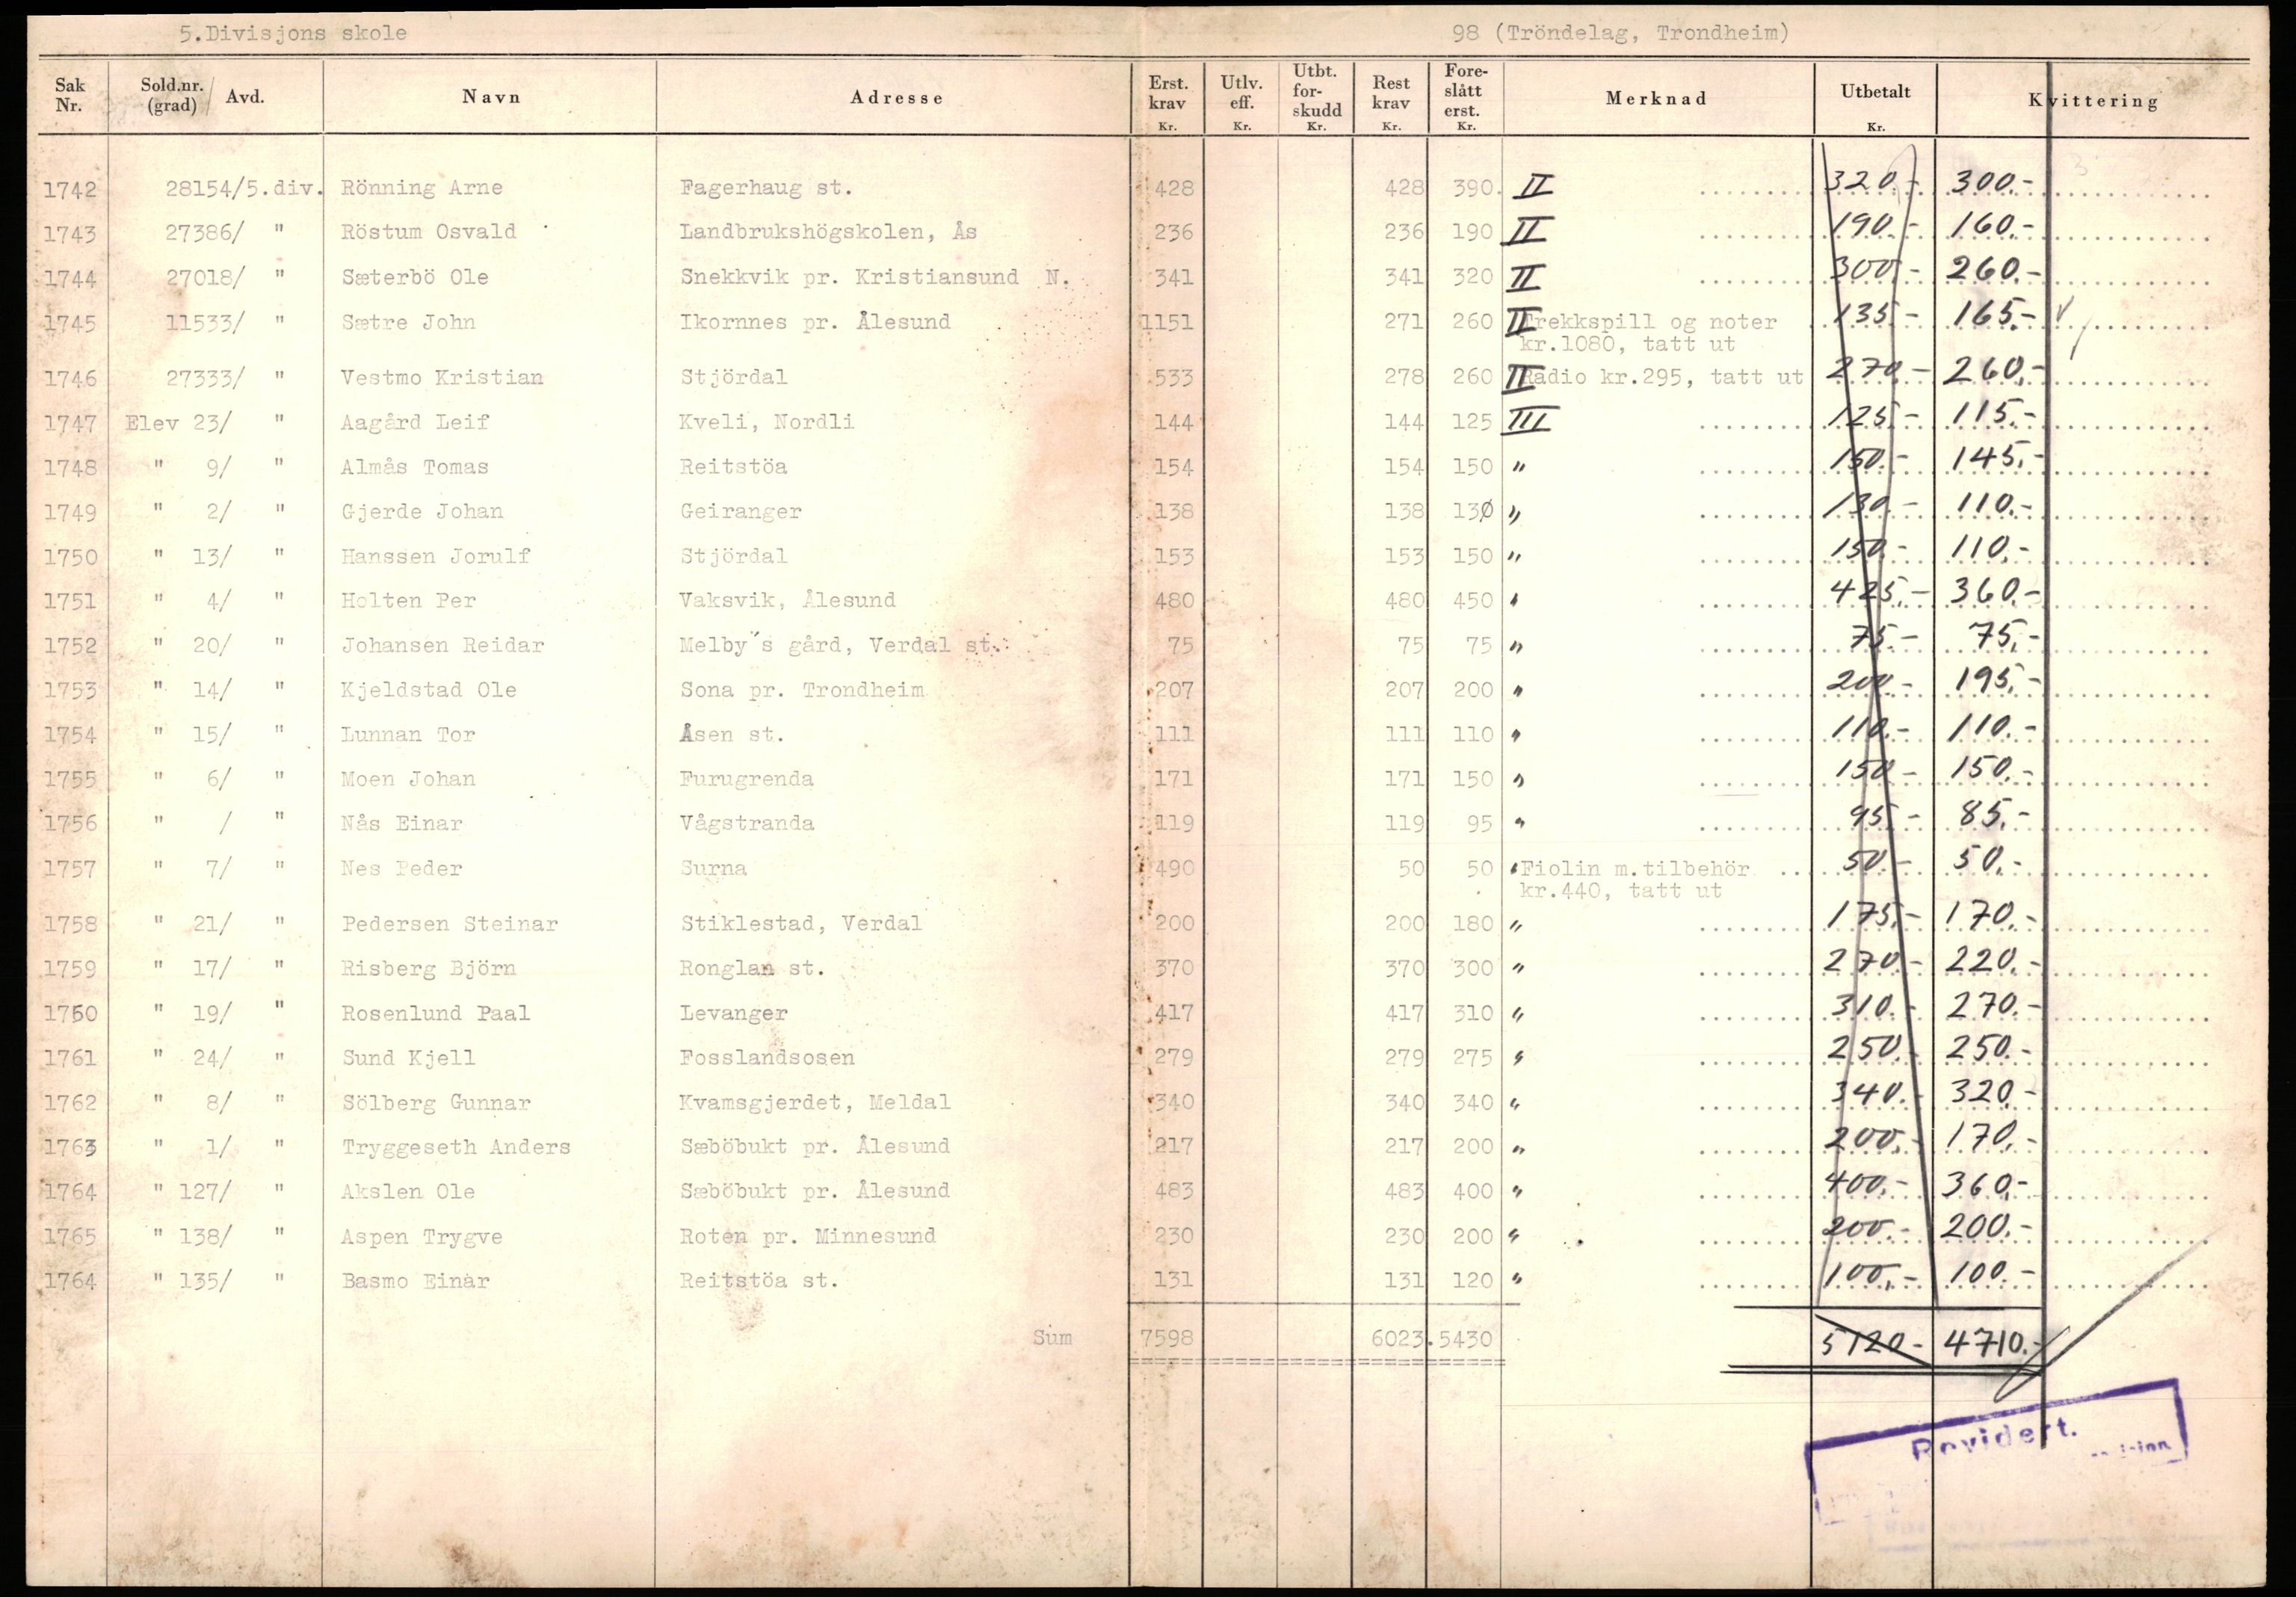 5.Divisjons skole 98 (Tröndelag, Trondheim)
Sak Nr. Sold.nr. (grad) / Avd. Navn Adresse Erst. krav Kr. Utlv. eff. Kr. Utbt. for- skudd Kr. Rest krav Kr. Fore- slått erst. Kr. Merknad Utbetalt Kr. Kvittering
1742 28154/5.div. Rönning Arne Fagerhaug st. 428 428 390. II 320.- 300.-
1743 27386/ " Röstum Osvald Landbrukshögskolen, Ås 236 236 190 II 190.- 160.-
1744 27018/ " Sæterbö Ole Snekkvik pr. Kristiansund N. 341 341 320 II 300.- 260.-
1745 11533/ " Sætre John Ikornnes pr. Ålesund 1151 271 260 II Trekkspill og noter 135.- 165.-
kr.1080, tatt ut
1746 27333/ " Vestmo Kristian Stjördal 533 278 260 II Radio kr.295, tatt ut 270.- 260.-
1747 Elev 23/ " Aagård Leif Kveli, Nordli 144 144 125 III 125.- 115.-
1748 " 9/ " Almås Tomas Reitstöa 154 154 150 " 150.- 145.-
1749 " 2/ " Gjerde Johan Geiranger 138 138 130 " 130.- 110.-
1750 " 13/ " Hanssen Jorulf Stjördal 153 153 150 " 150.- 110.-
1751 " 4/ " Holten Per Vaksvik, Ålesund 480 480 450 " 425.- 360.-
1752 " 20/ " Johansen Reidar Melby's gård, Verdal st. 75 75 75 " 75.- 75.-
1753 " 14/ " Kjeldstad Ole Sona pr. Trondheim 207 207 200 " 200.- 195.-
1754 " 15/ " Lunnan Tor Åsen st. 111 111 110 " 110.- 110.-
1755 " 6/ " Moen Johan Furugrenda 171 171 150 " 150.- 150.-
1756 " / " Nås Einar Vågstranda 119 119 95 " 95.- 85.-
1757 " 7/ " Nes Peder Surna 490 50 50 " Fiolin m.tilbehör 50.- 50.-
kr.440, tatt ut
1758 " 21/ " Pedersen Steinar Stiklestad, Verdal 200 200 180 " 175.- 170.-
1759 " 17/ " Risberg Björn Ronglan st. 370 370 300 " 270.- 220.-
1760 " 19/ " Rosenlund Paal Levanger 417 417 310 " 310.- 270.-
1761 " 24/ " Sund Kjell Fosslandsosen 279 279 275 " 250.- 250.-
1762 " 8/ " Sölberg Gunnar Kvamsgjerdet, Meldal 340 340 340 " 340.- 320.-
1763 " 1/ " Tryggeseth Anders Sæböbukt pr. Ålesund 217 217 200 " 200.- 170.-
1764 " 127/ " Akslen Ole Sæböbukt pr. Ålesund 483 483 400 " 400.- 360.-
1765 " 138/ " Aspen Trygve Roten pr. Minnesund 230 230 200 " 200.- 200.-
1764 " 135/ " Basmo Einar Reitstöa st. 131 131 120 " 100.- 100.-
Sum 7598 6023.5430 5120.- 4710.-
Revidert.